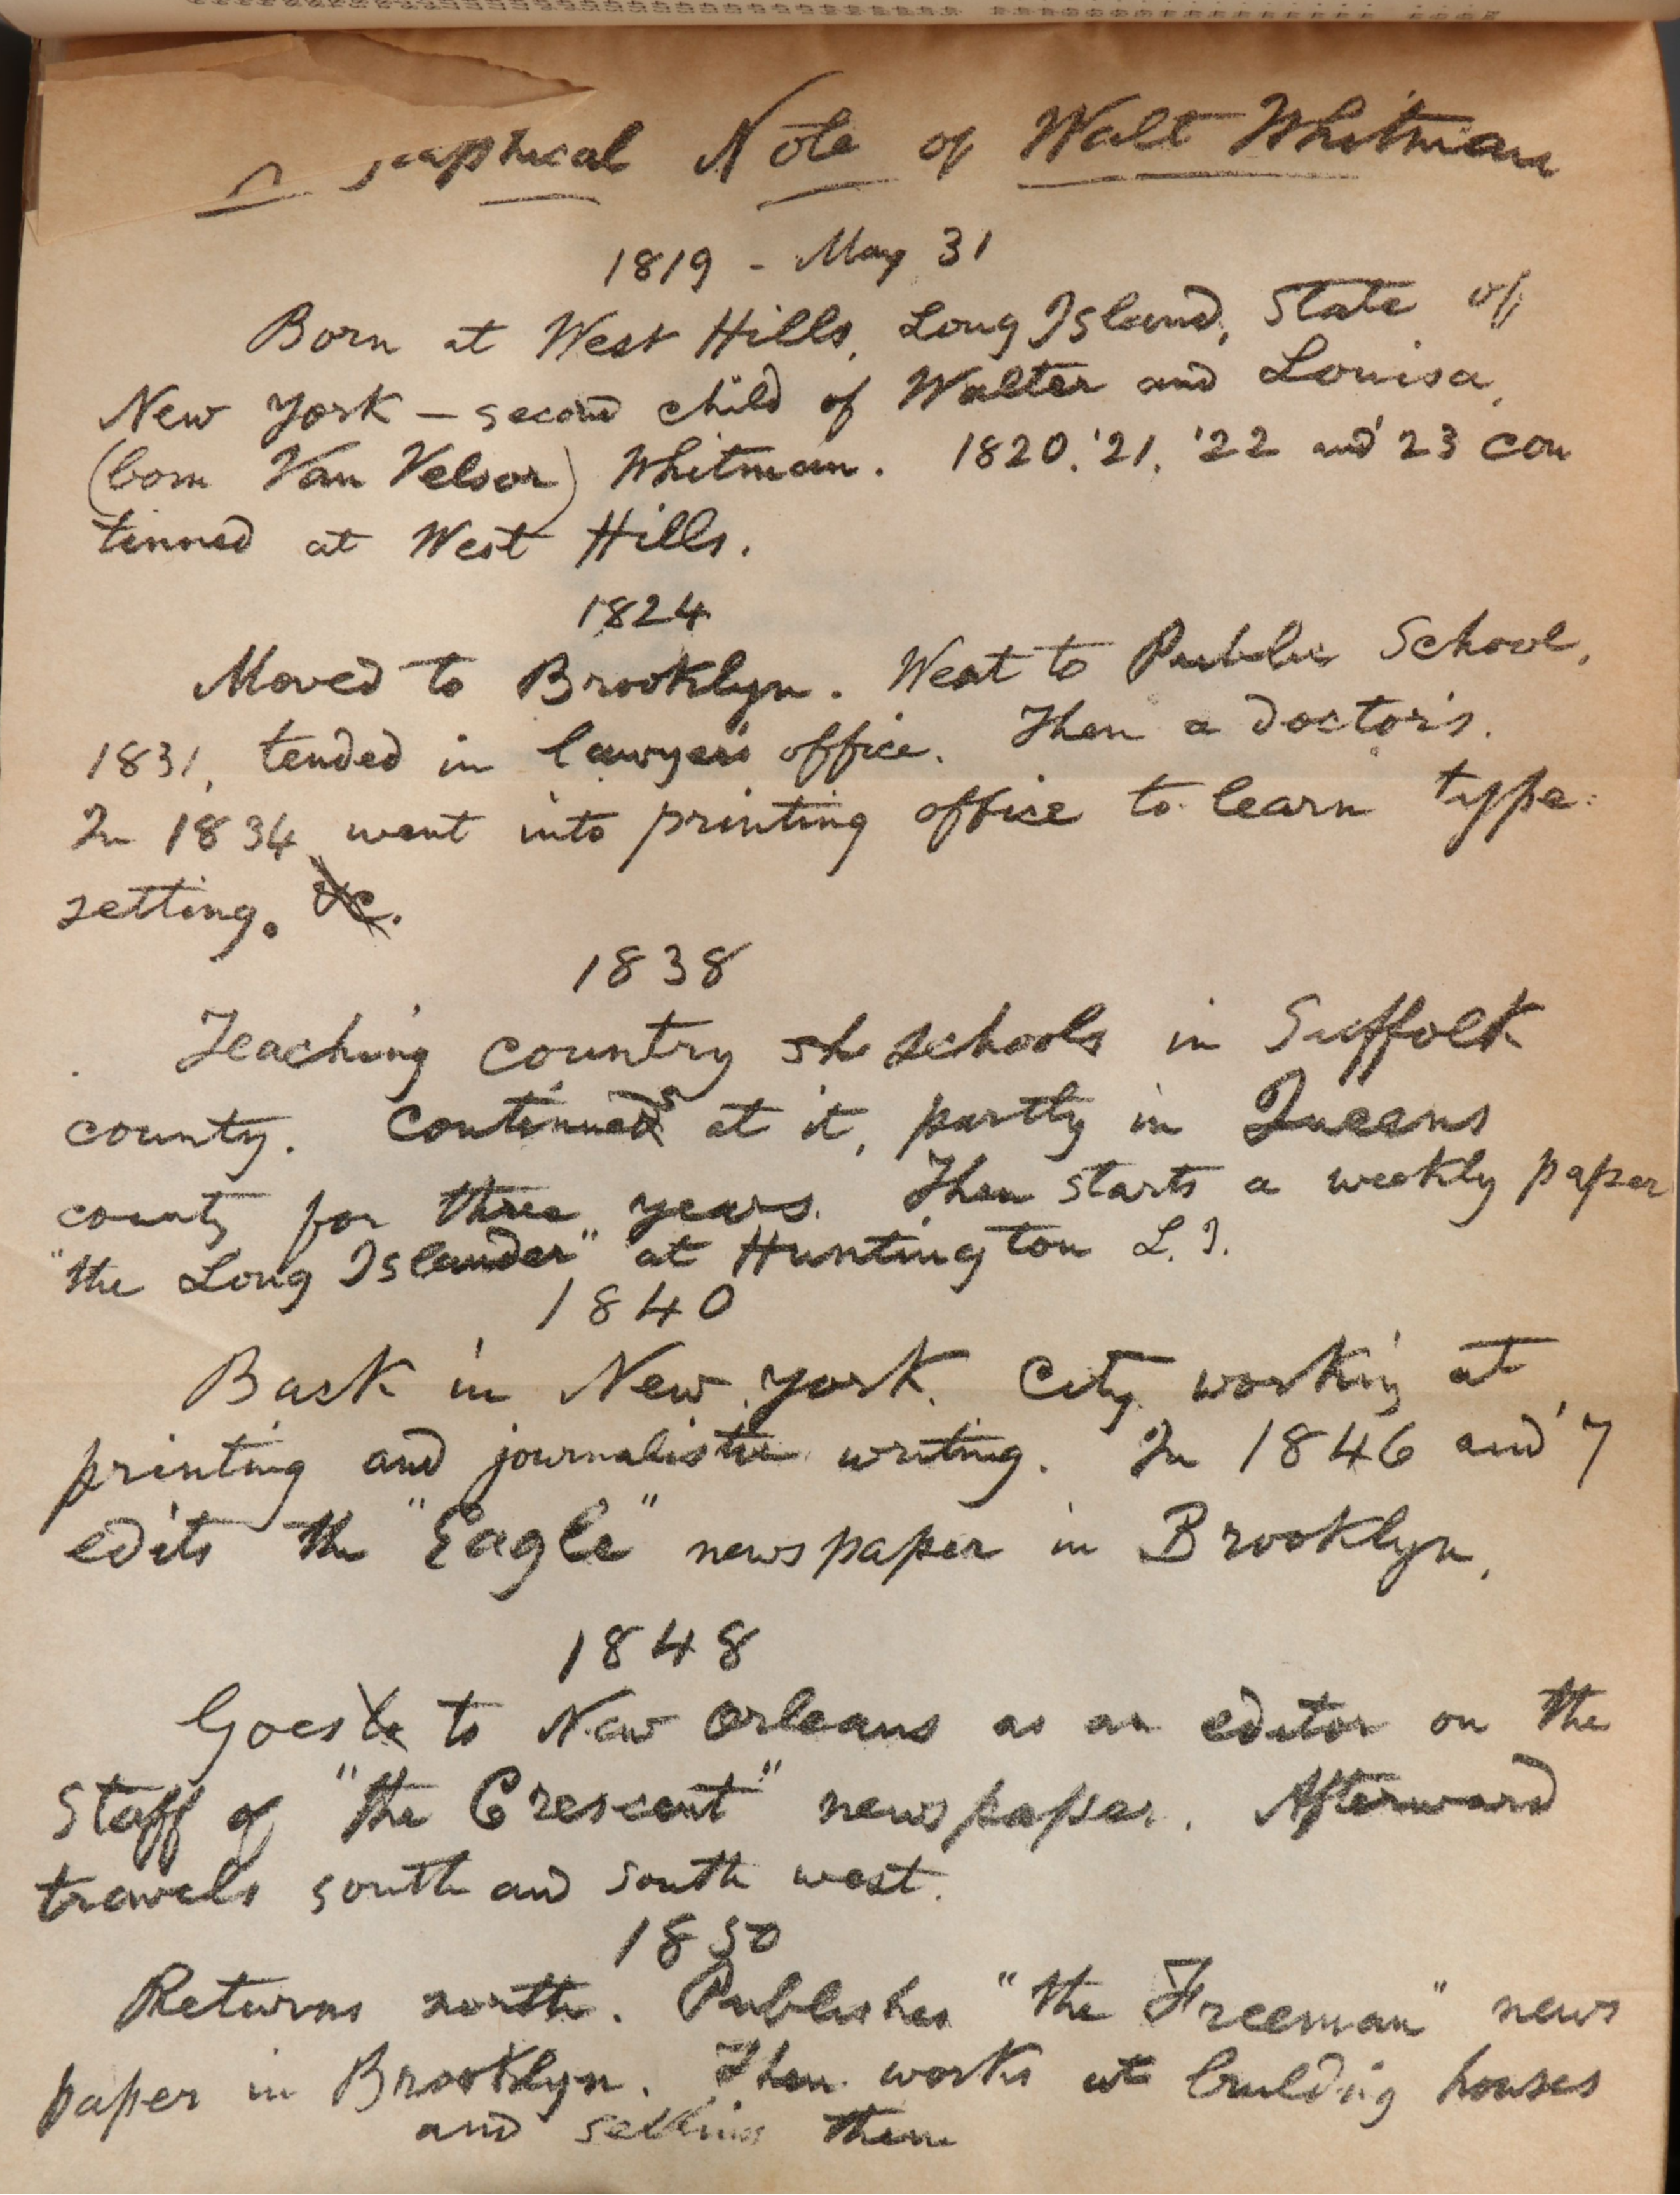 raphical Note of Walt Whitman
1819 - May 31
Born at West Hills, Long Island, State of
New York — second child of Walter and Louisa,
(born Van Velsor) Whitman. 1820, '21, '22 and '23 con
tinued at West Hills.
1824
Moved to Brooklyn. Went to Public School,
1831, tended in lawyer's office. Then a doctor's.
In 1834 went into printing office to learn type-
setting. &c.
1838
Teaching country sh schools in Suffolk
county. Continueds at it, partly in Queens
county for three years. Then starts a weekly paper
"the Long Islander" at Huntington L. I.
1840
Back in New York City working at
printing and journalistic writing. In 1846 and '7
edits the "Eagle" newspaper in Brooklyn.
1848
Goes to to New Orleans as an editor on the
staff of "the Crescent" newspaper. Afterward
travels south and south west.
1850
Returns north. Publishes "the Freeman" news
paper in Brooklyn. Then works at building houses
and selling them